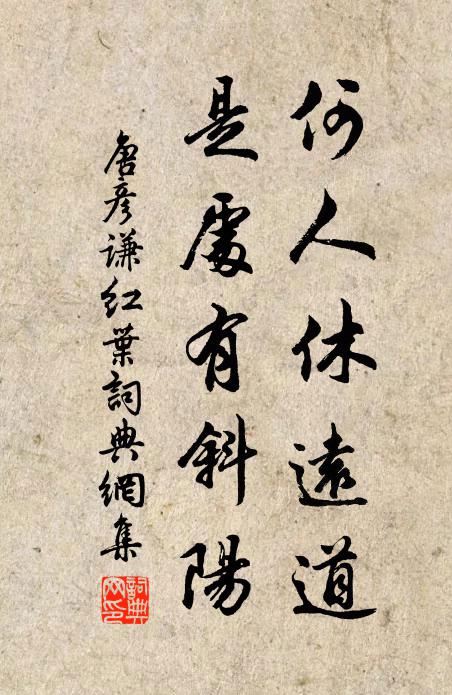 何人休遠道
是處有斜陽
唐彥謙紅葉詞典網集
詞典網印